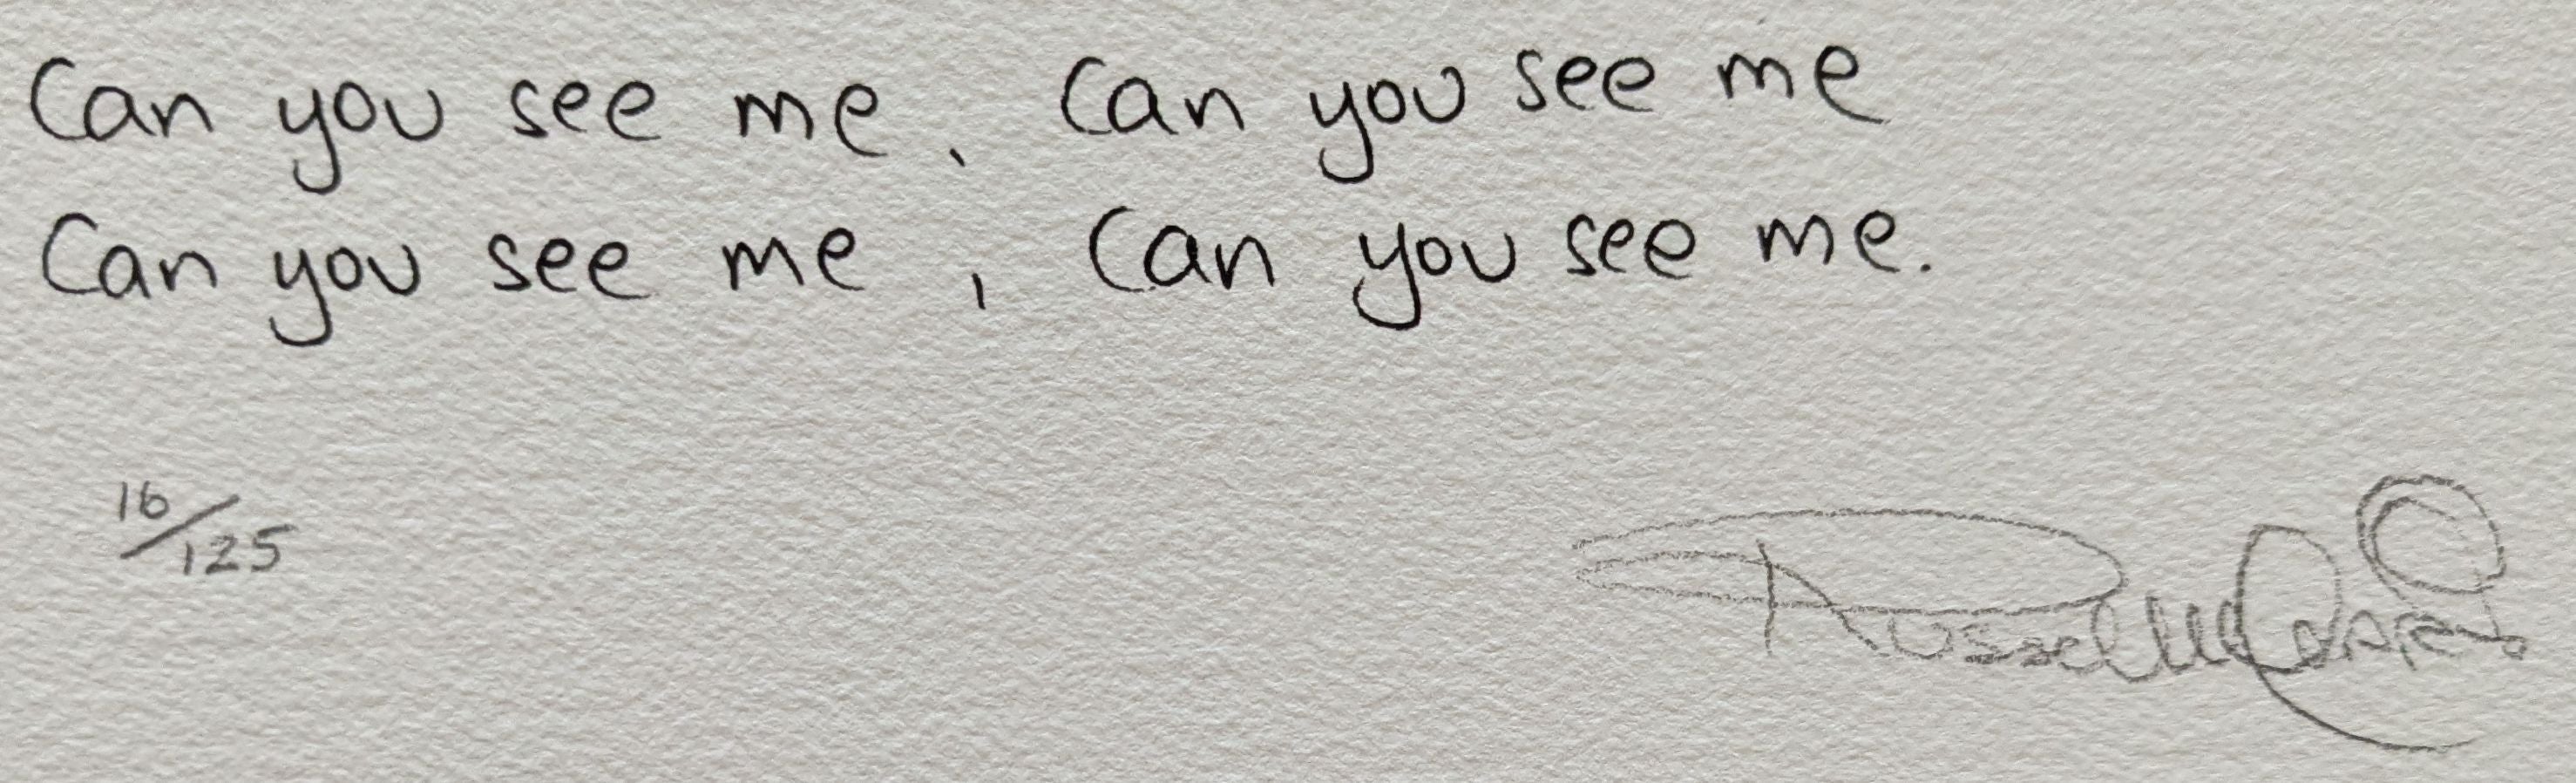 Can you see me, Can you see me
Can you see me, Can you see me.
16/125
Russell